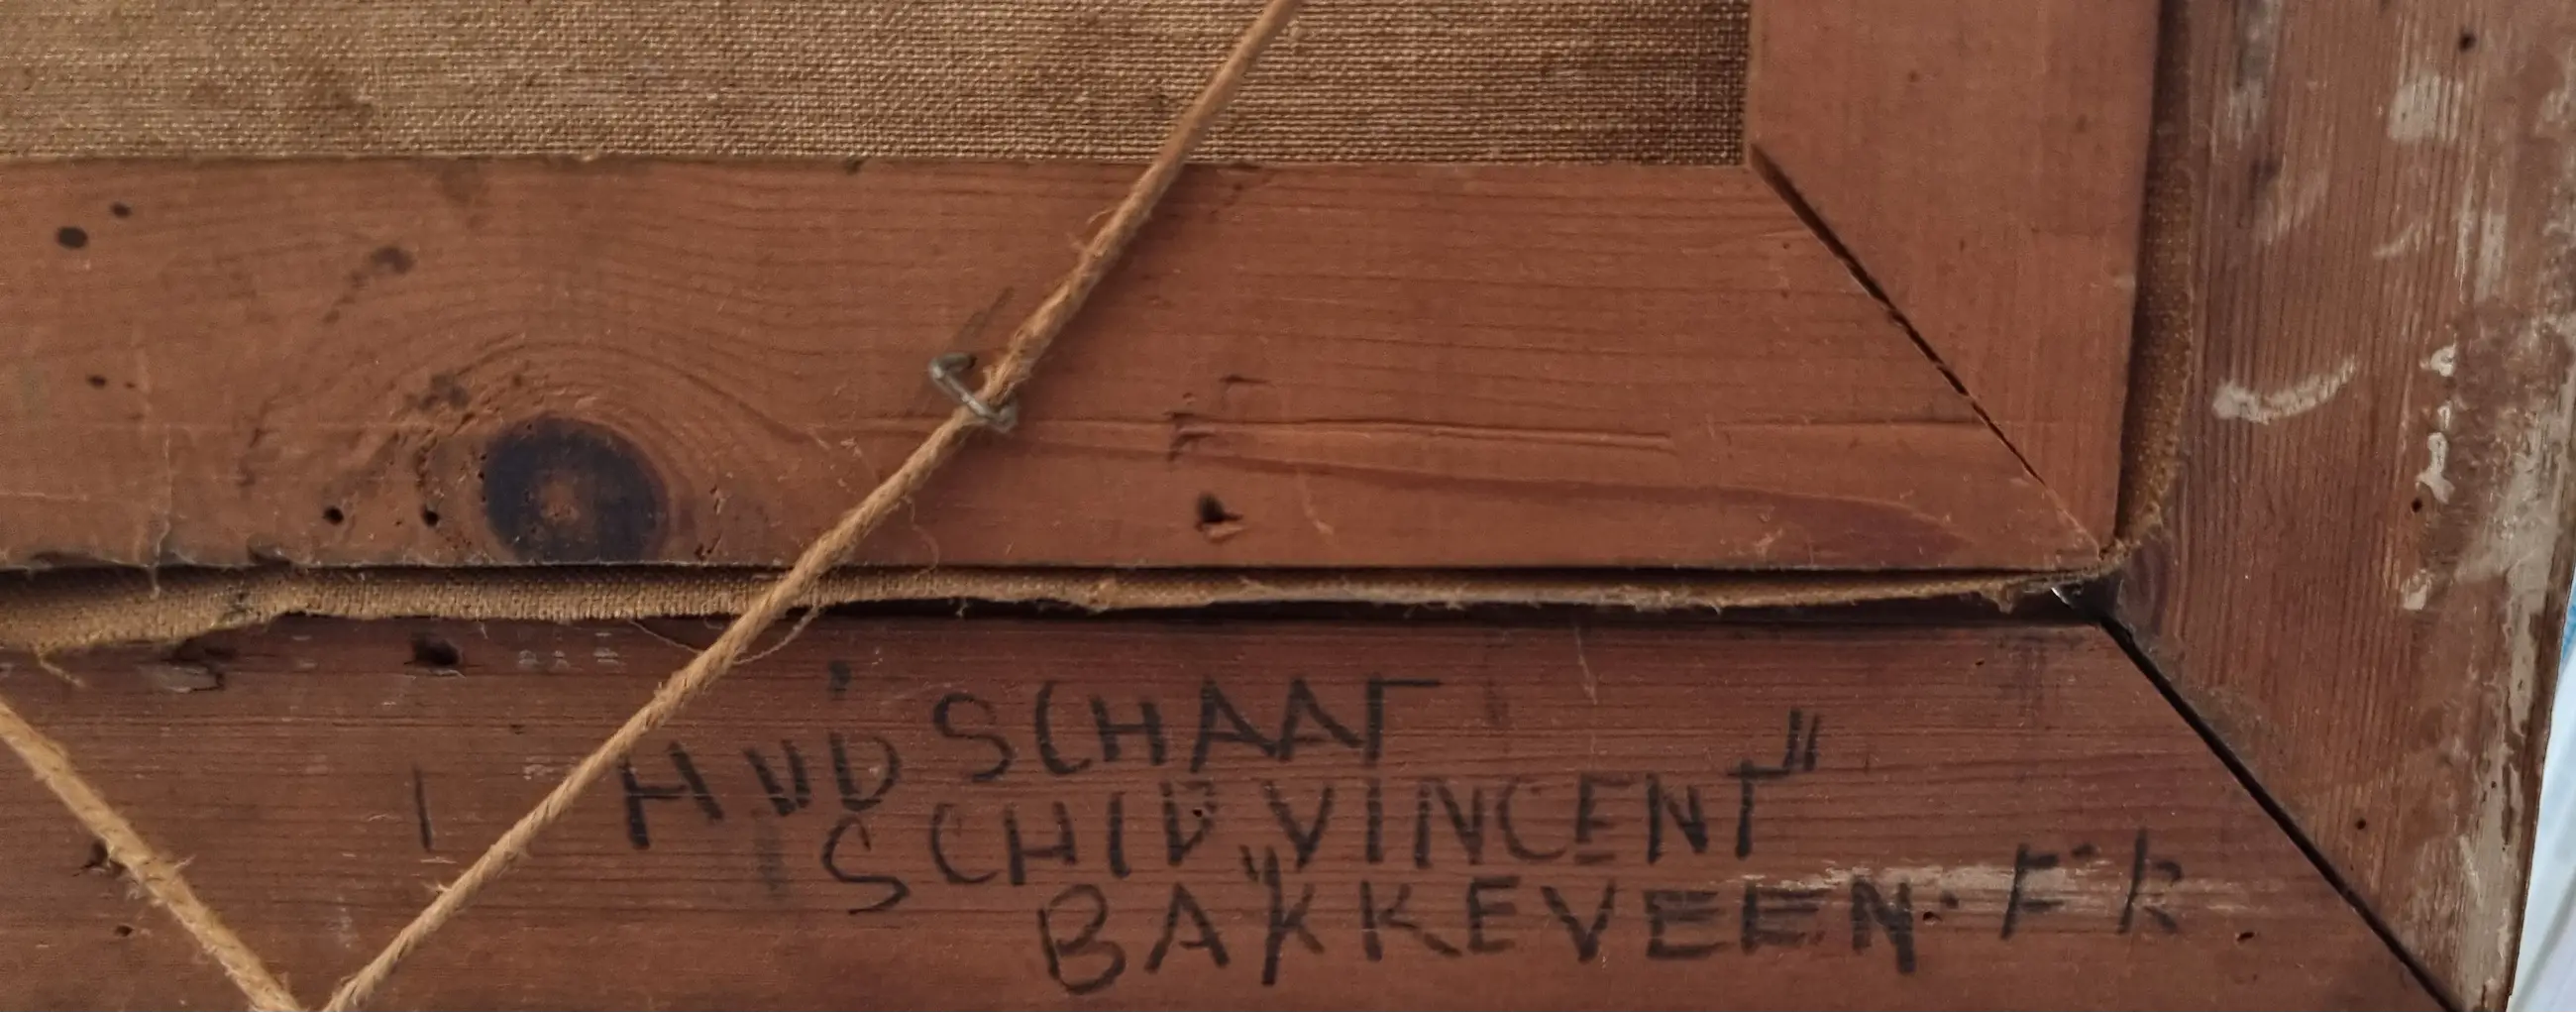 H V D SCHAAF
SCHIP „VINCENT"
BAKKEVEEN. FR